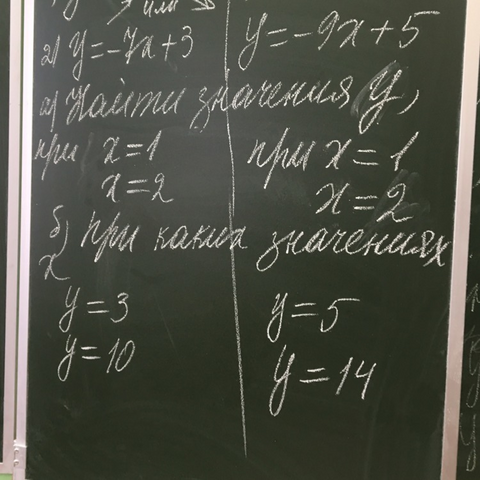 или
2) y=-7x+3 y=-9x+5
а) Найти значения y,
при x=1 при x=1
x=2 x=2
б) при каких значениях
x
y=3 y=5
y=10 y=14